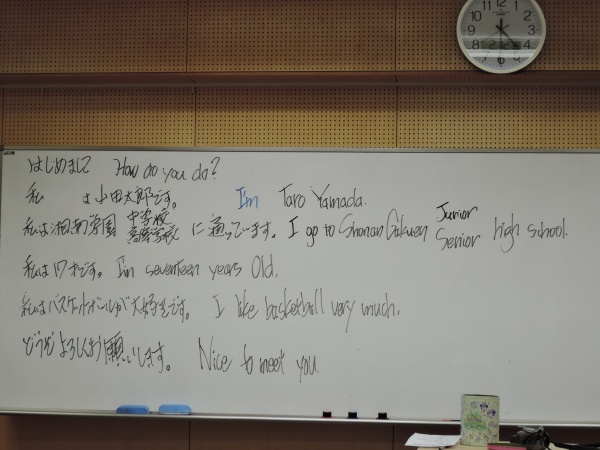 はじめまして How do you do?
私 は山田太郎です。 I'm Taro Yamada.
私は湘南学園 中学校 高等学校 に通っています。 I go to Shonan Gakuen Junior Senior high school.
私は17才です。 I'm seventeen years Old.
私はバスケットボールが大好きです。 I like basketball very much.
どうぞよろしくお願いします。 Nice to meet you.